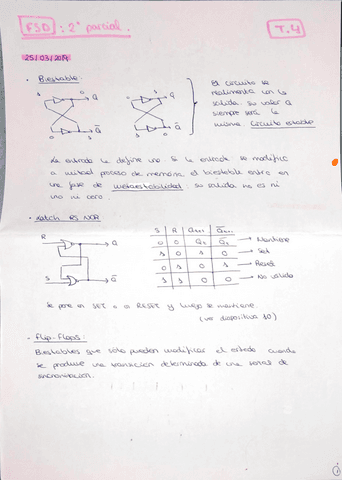 FSD: 2º parcial.
T.4
25/03/2019
• Biestable:
El circuito se
realimenta con la
salida. Su valor Q
siempre será la
misma. Circuito estable
La entrada la define uno. Si la entrada se modifica
a mitad proceso de memoria el biestable entra en
una fase de metaestabilidad: su salida no es ni
uno ni cero.
• Latch RS NOR
S R Qt+1 Q̄t+1
0 0 Qt Q̄t → Mantiene
1 0 1 0 → Set
0 1 0 1 → Reset
1 1 0 0 → No válido
R Q
S Q̄
Se pone en SET o a RESET y luego se mantiene.
(ver diapositiva 10)
• Flip-Flops:
Biestables que sólo pueden modificar el estado cuando
se produce una transición determinada de una señal de
sincronización.